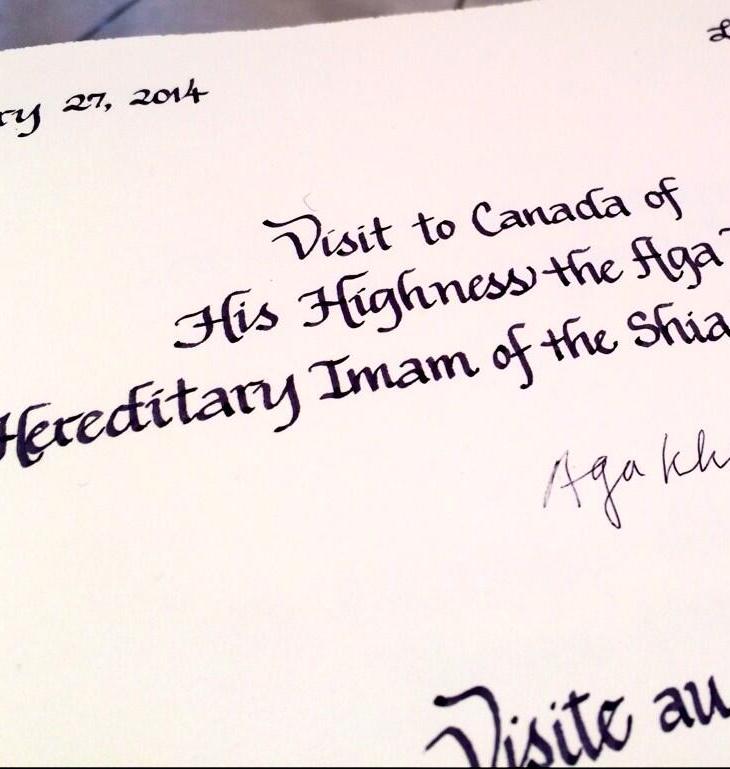 27, 2014
Visit to Canada of
His Highness the Aga
Hereditary Imam of the Shia
Aga Kh
Visite au